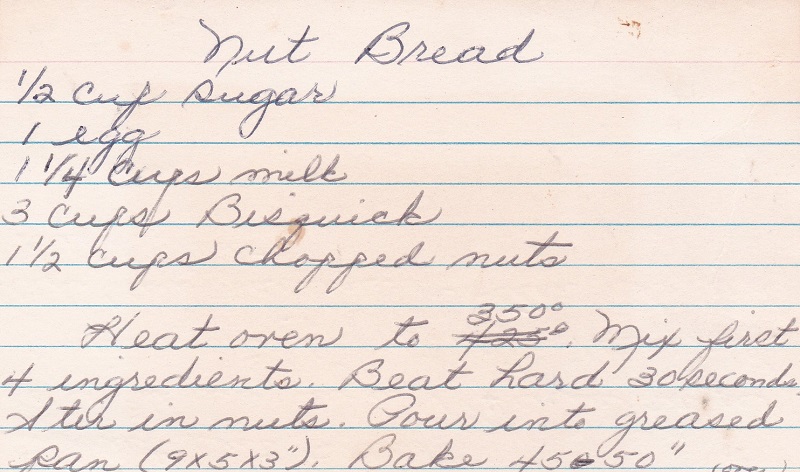 Nut Bread
1/2 cup sugar
1 egg
1 1/4 cups milk
3 cups Bisquick
1 1/2 cups chopped nuts
350°
Heat oven to 425°. Mix first
4 ingredients. Beat hard 30 seconds.
Ster in nuts. Pour into greased
pan (9x5x3"). Bake 45-50"